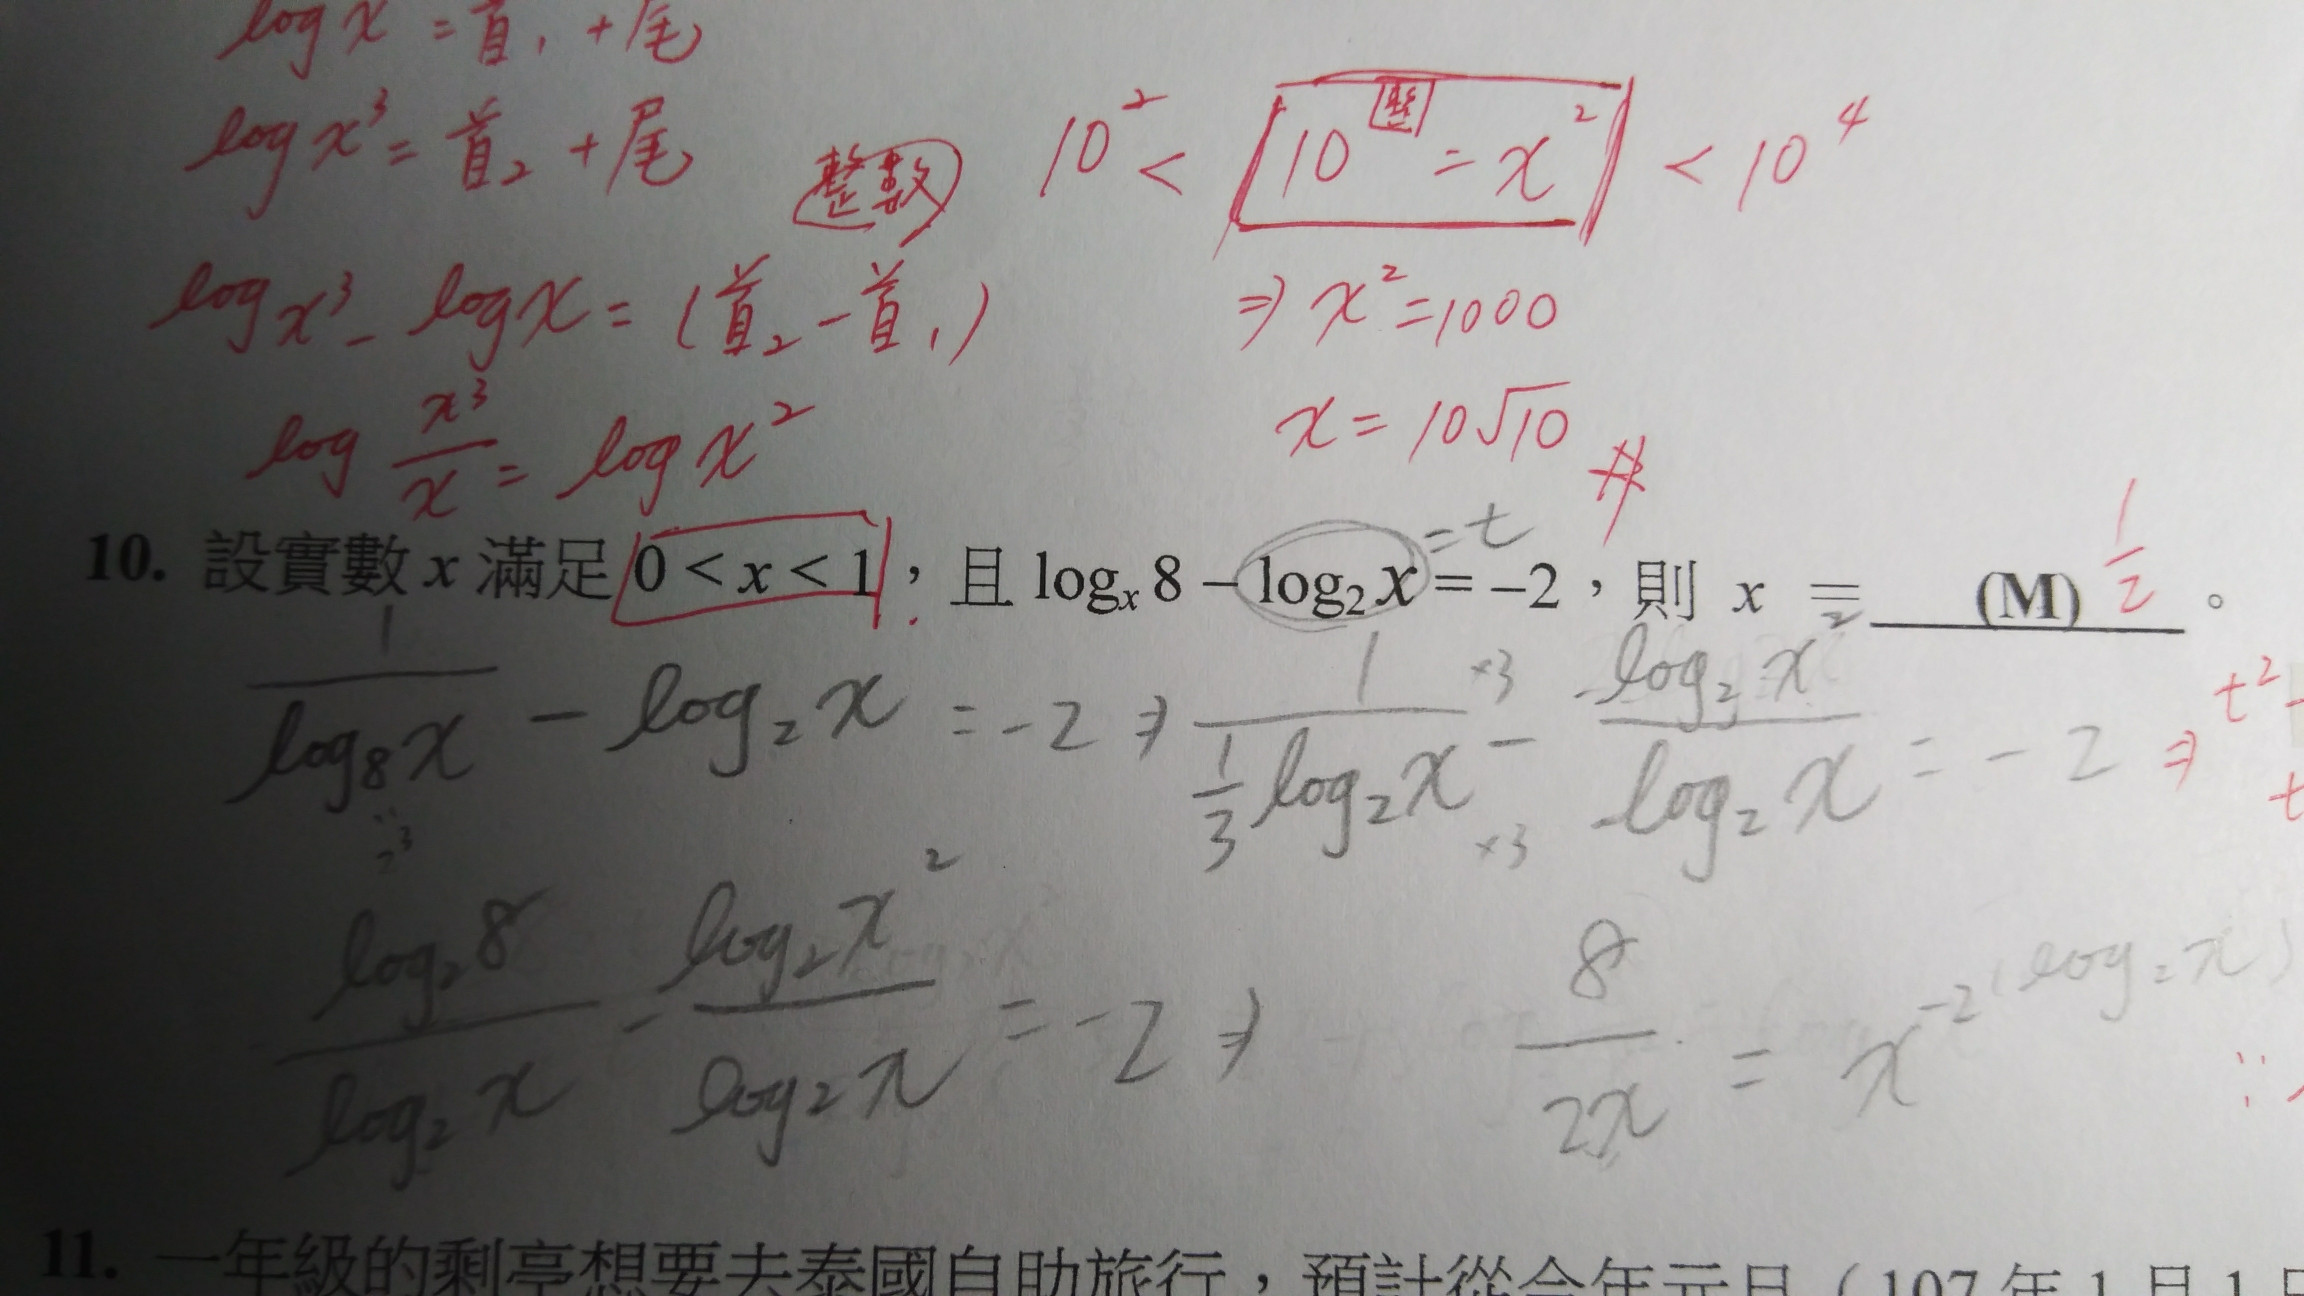 log x = 首₁ + 尾
log x³ = 首₂ + 尾
整數
10² < 10^整 = x² < 10⁴
log x³ - log x = (首₂ - 首₁)
⇒ x² = 1000
log x³/x = log x²
x = 10√10 #
= t
10. 設實數 x 滿足 0 < x < 1,且 logₓ 8 − log₂ x = −2,則 x = (M) 1/2 。
1/log₈x - log₂x = -2 ⇒ 1/(1/3 log₂x) ×3 ×3 - log₂x²/log₂x = -2 ⇒ t² -
t
2³
log₂8/log₂x - log₂x²/log₂x = -2 ⇒ 8/2x = x^-2 (log₂x)
11. 一年級的剩亭想要去泰國自助旅行,預計從今年元旦(107 年 1 月 1 日